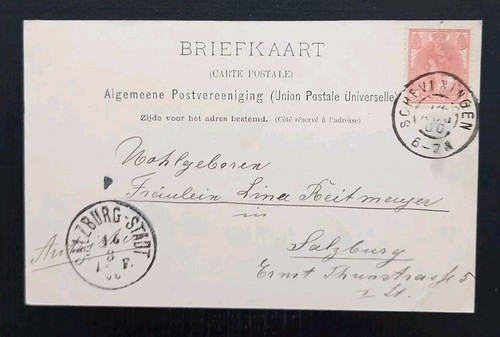 BRIEFKAART
(CARTE POSTALE)
Algemeene Postvereeniging (Union Postale Universelle)
Zijde voor het adres bestemd. (Côté réservé à l'adresse)
SCHEVENINGEN
6-7N
Wohlgeboren
Fräulein Lina Reitmayer
in
Salzburg
Ernst Thunstrasse 5
I St.
SALZBURG-STADT